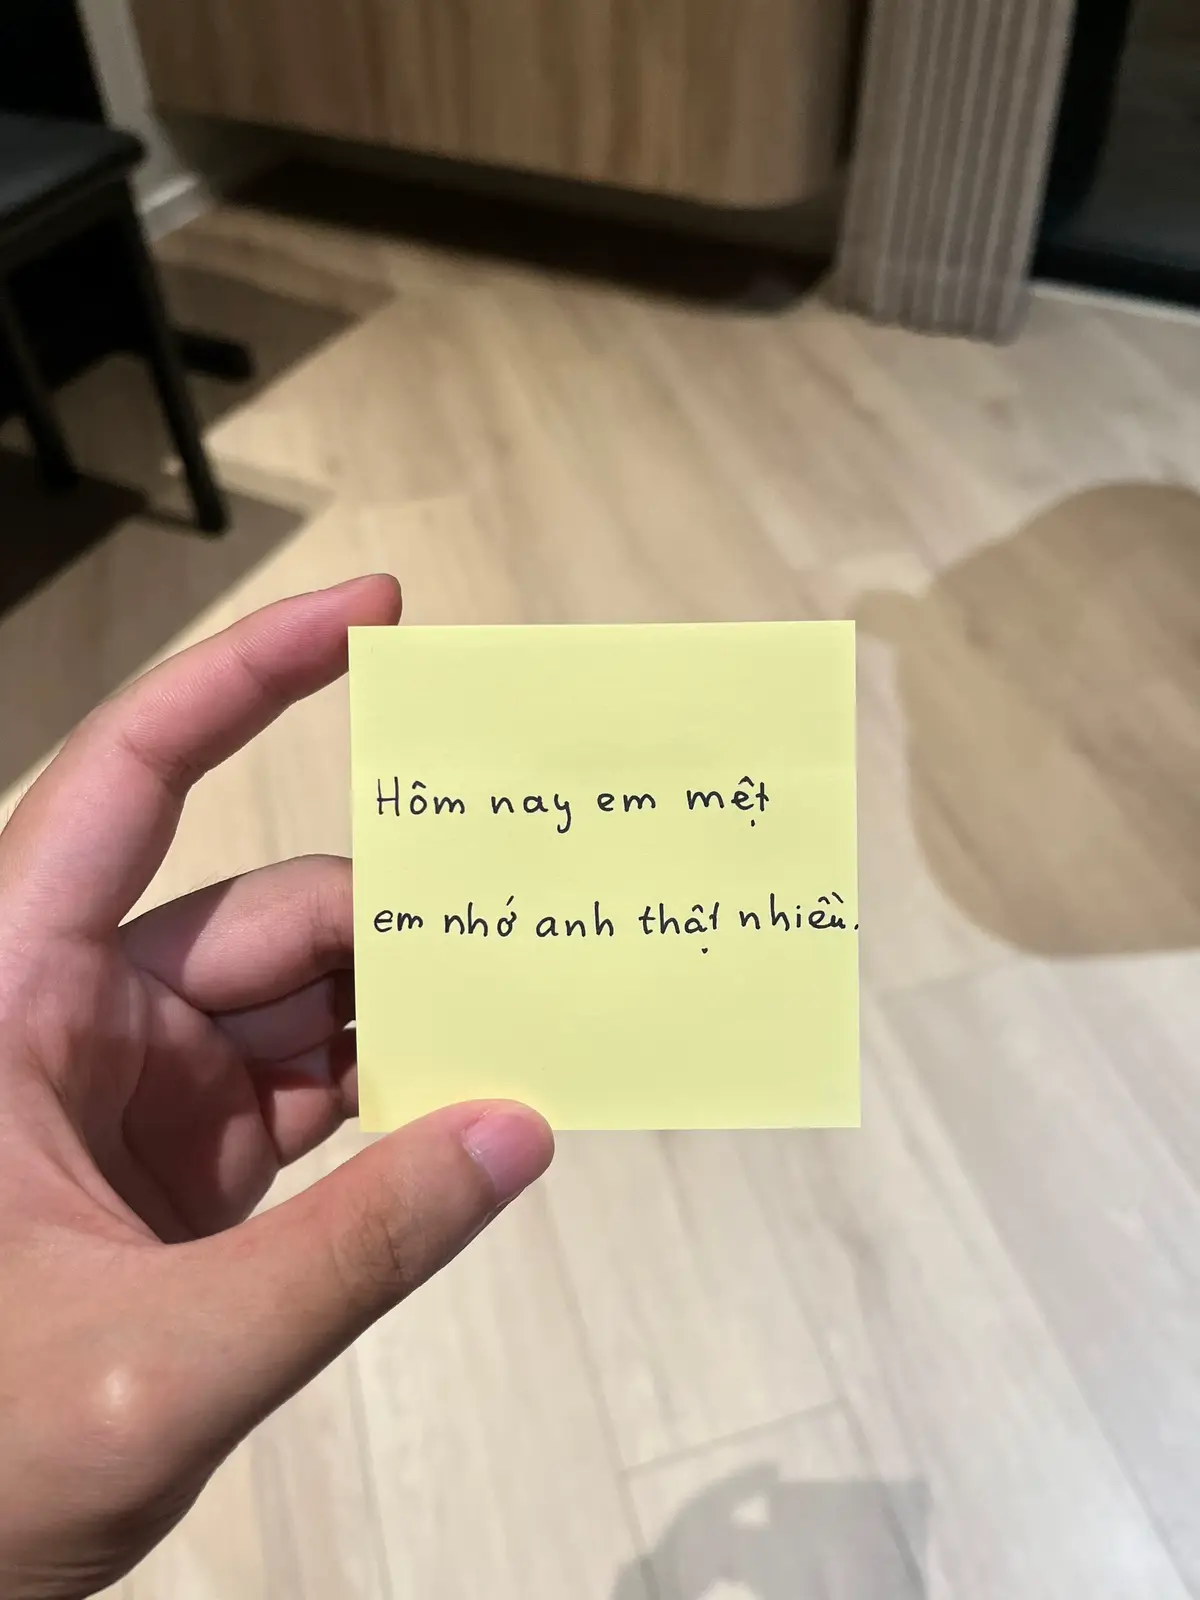 Hôm nay em mệt
em nhớ anh thật nhiều.